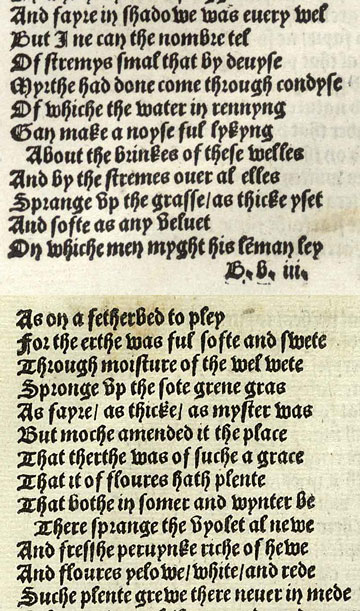 And fayre in shadowe was euery wel
But I ne can the nombre tel
Of stremys smal that by deuyse
Myrthe had done come through condyse
Of whiche the water in rennyng
Gan make a noyse ful lykyng
About the brinkes of these welles
And by the stremes ouer al elles
Sprange vp the grasse/ as thicke yset
And softe as any veluet
On whiche men myght his lēman ley
B. b. iii.
As on a fetherbed to pley
For the erthe was ful softe and swete
Through moisture of the wel wete
Spronge vp the sote grene gras
As fayre/ as thicke/ as myster was
But moche amended it the place
That therthe was of suche a grace
That it of floures hath plente
That bothe in somer and wynter be
There sprange the vyolet al newe
And fresshe peruynke riche of hewe
And floures yelowe/ white/ and rede
Suche plente grewe there neuer in mede